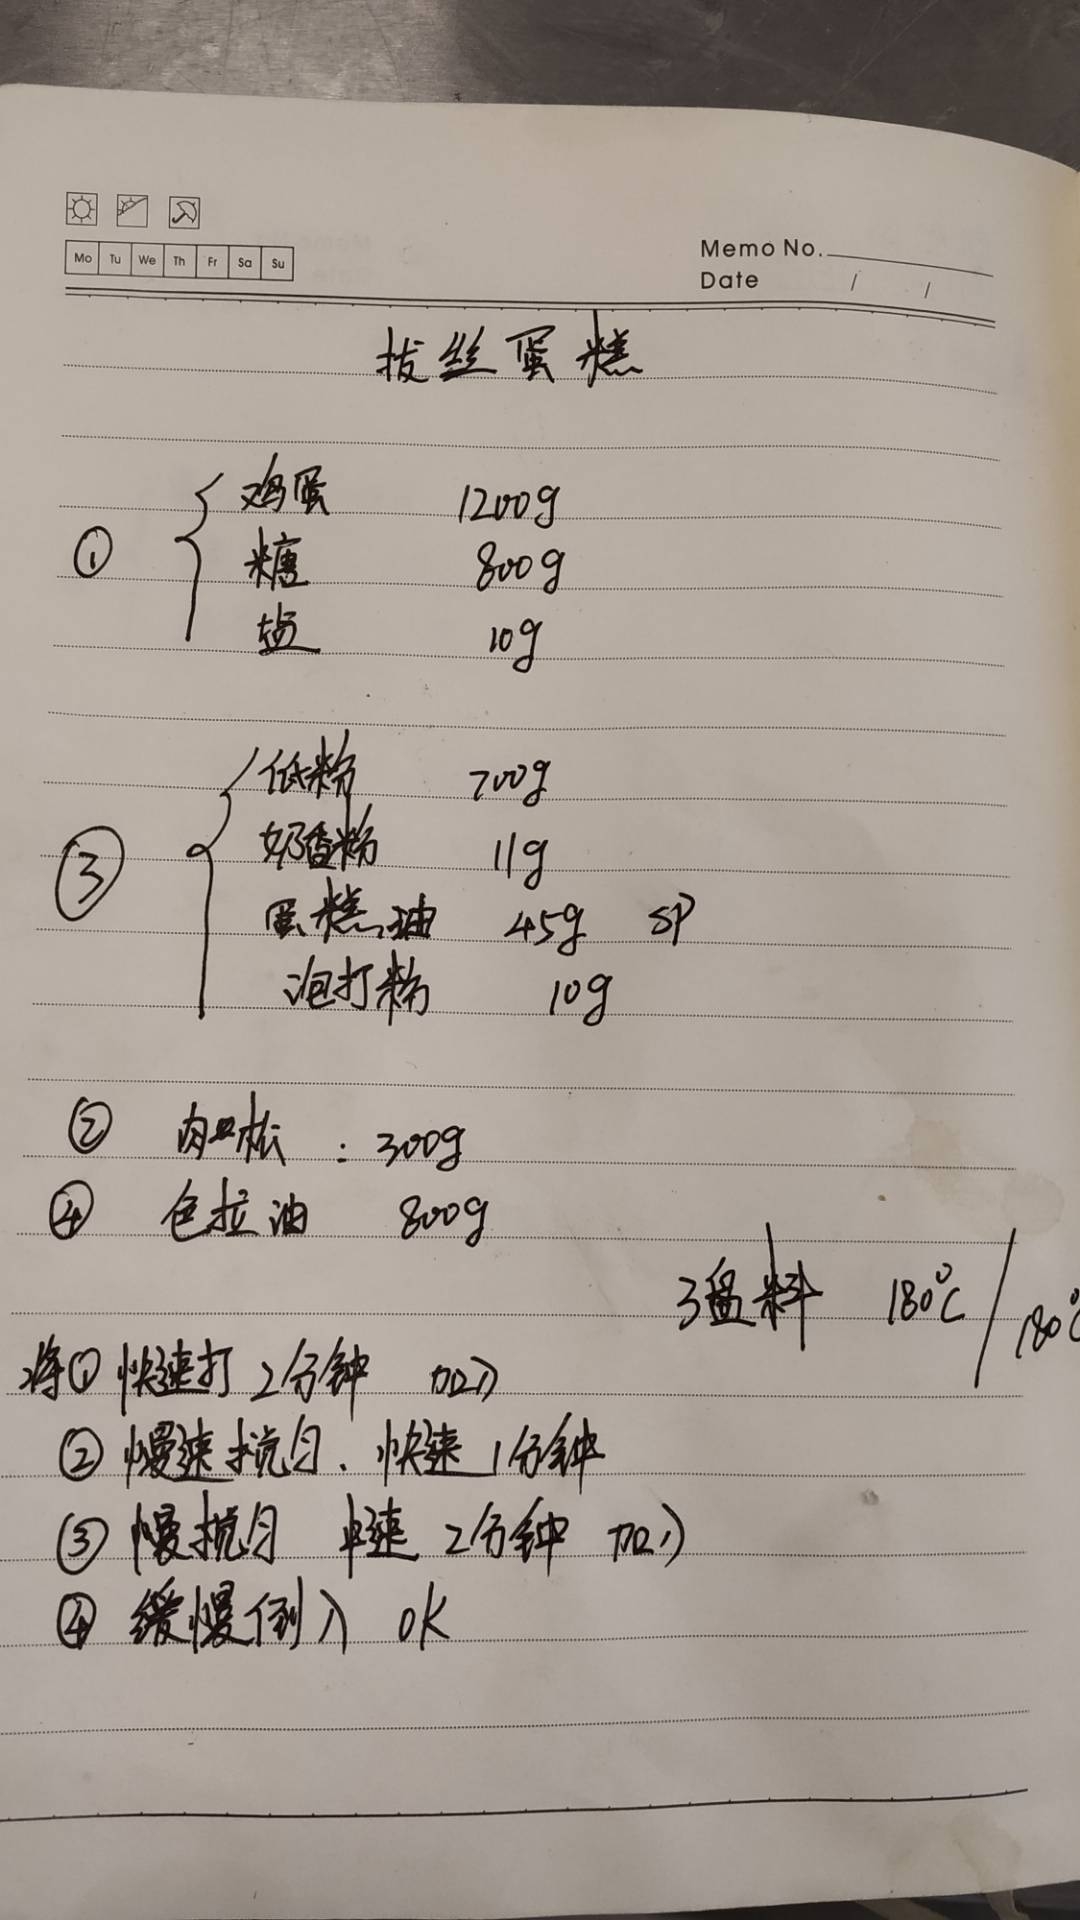 Mo Tu We Th Fr Sa Su
Memo No.
Date / /
拔丝蛋糕
① 鸡蛋 1200g
糖 800g
盐 10g
③ 低粉 700g
奶香粉 11g
蛋糕油 45g SP
泡打粉 10g
② 肉松 : 300g
④ 色拉油 800g
3盘料 180℃ / 180℃
将① 快速打 2分钟 加入
② 慢速搅匀. 快速 1分钟
③ 慢搅匀 中速 2分钟 加入
④ 缓慢倒入 OK